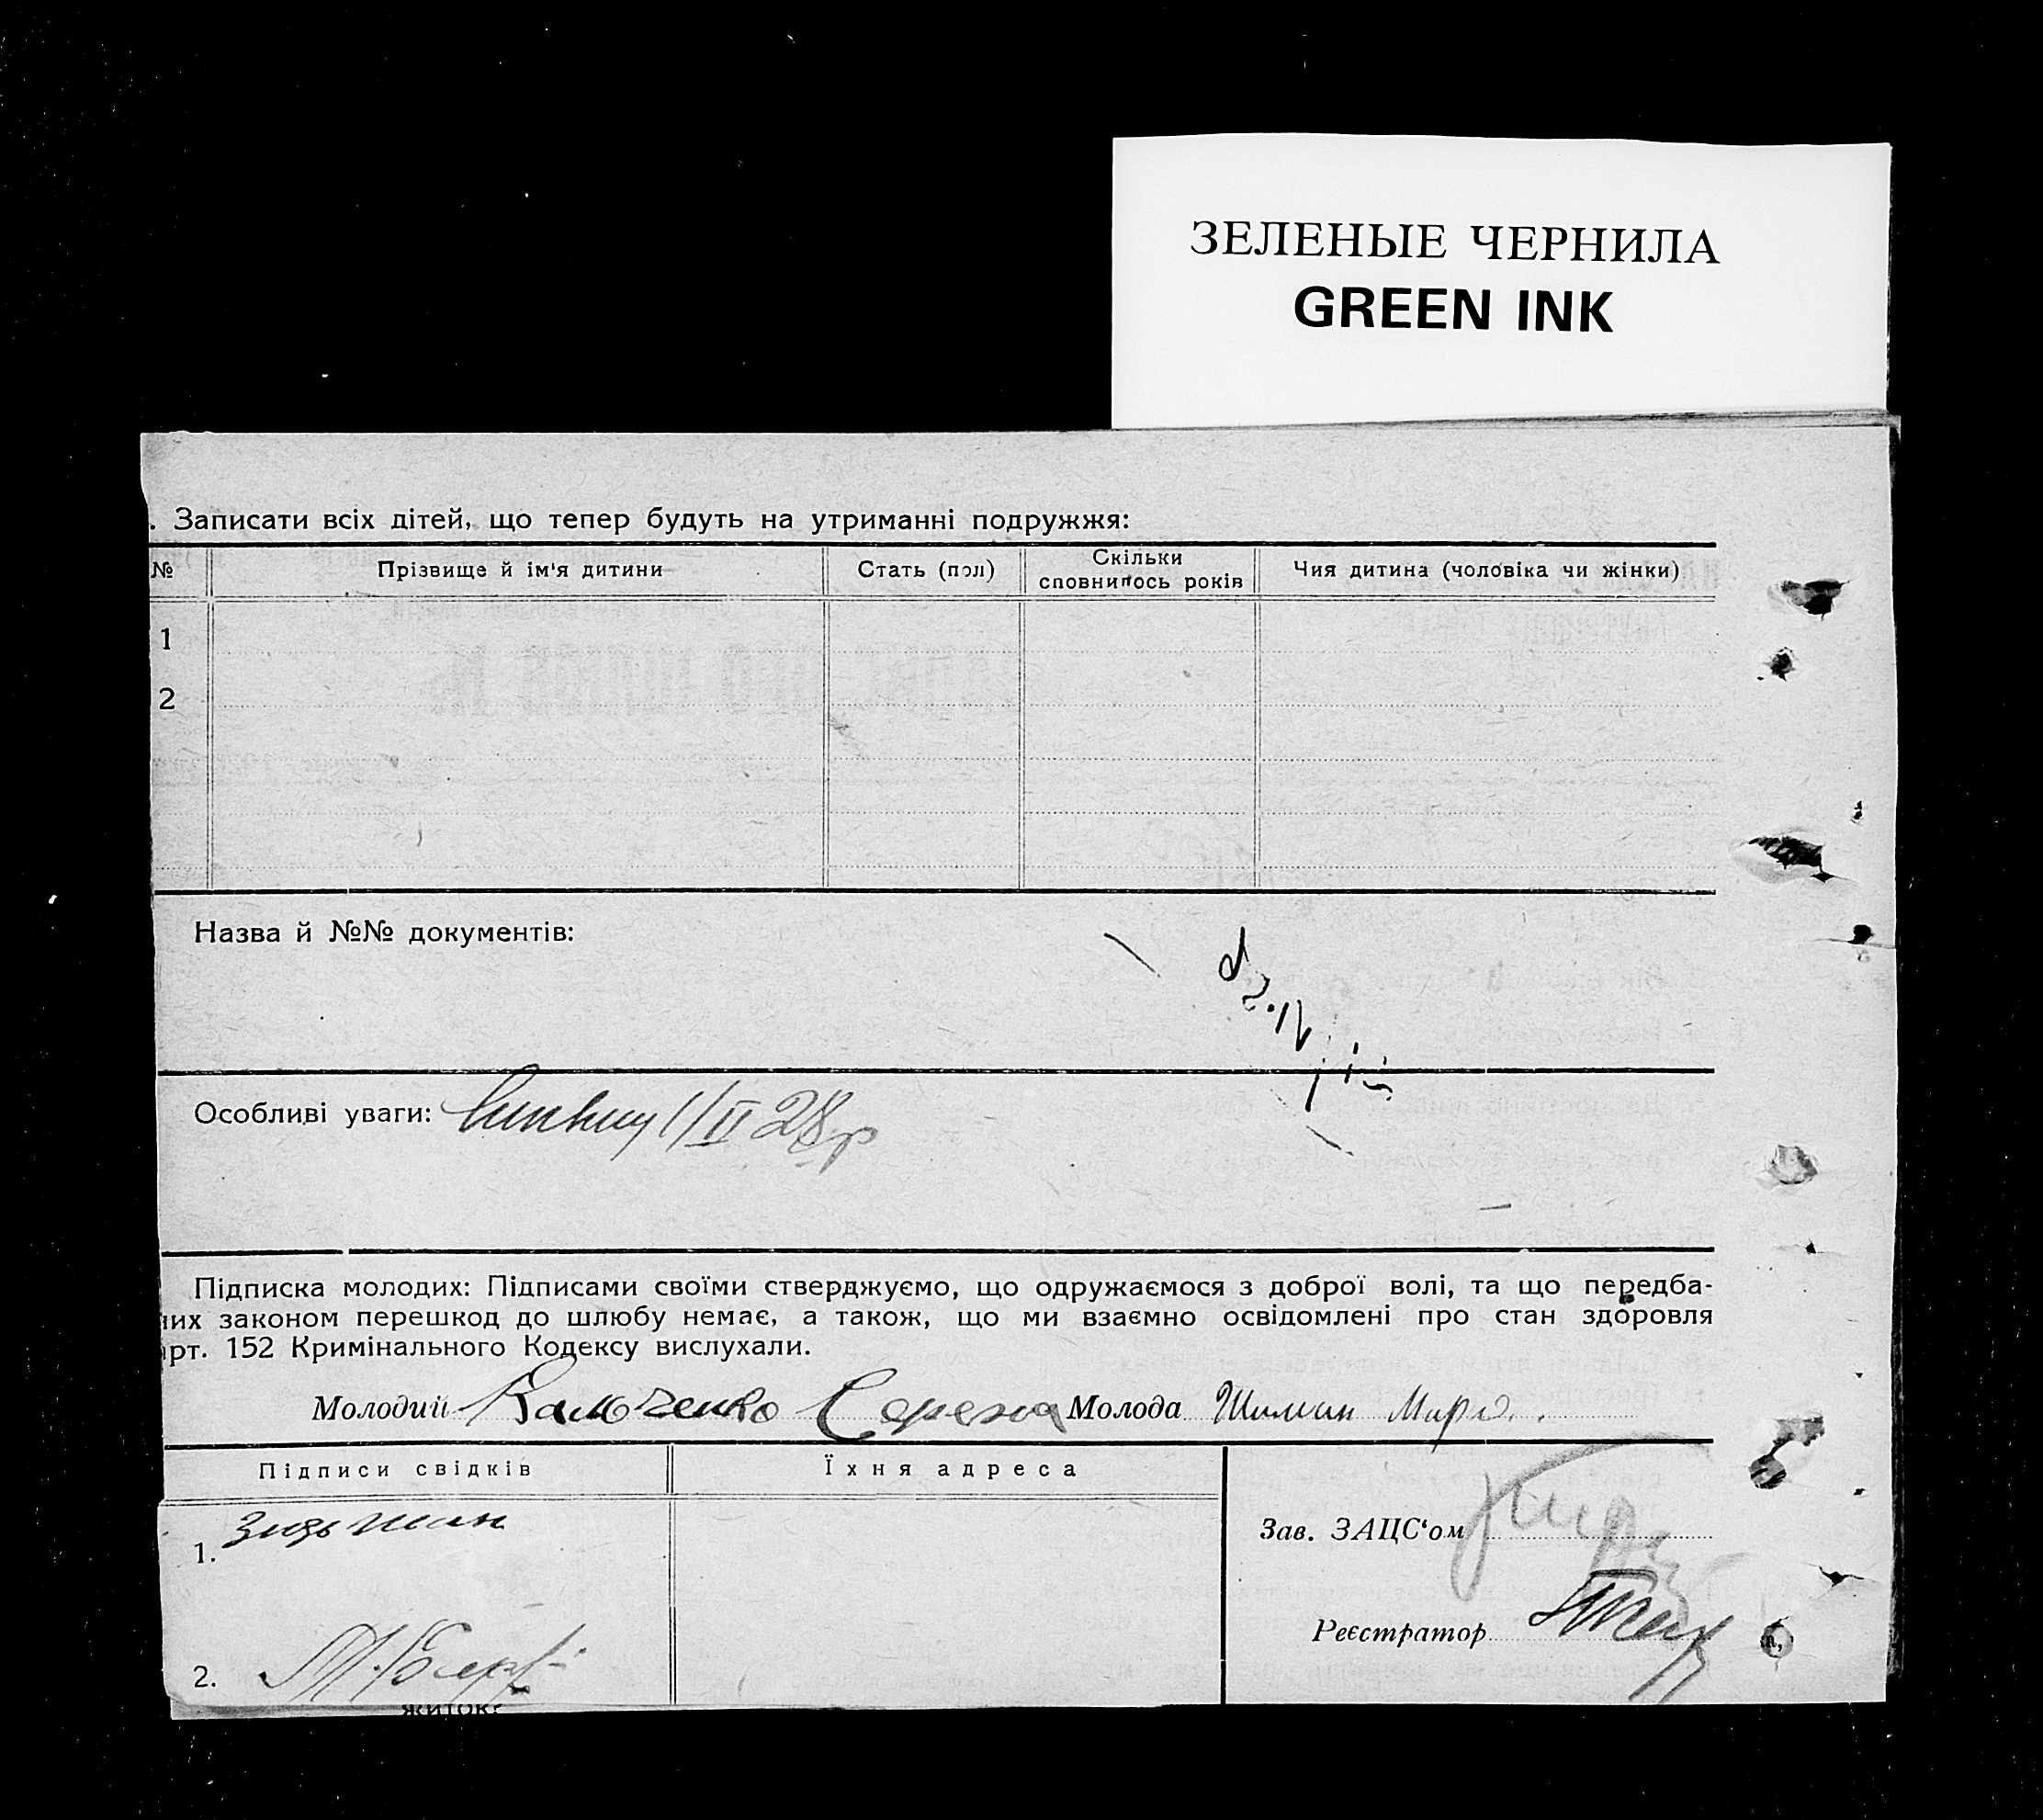 ЗЕЛЕНЫЕ ЧЕРНИЛА
GREEN INK
. Записати всіх дітей, що тепер будуть на утриманні подружжя:
№ Прізвище й ім'я дитини Стать (пол) Скільки сповнилось років Чия дитина (чоловіка чи жінки)
1
2
Назва й №№ документів:
Особливі уваги: 1/II 28 р
Підписка молодих: Підписами своїми стверджуємо, що одружаємося з доброї волі, та що передба-
них законом перешкод до шлюбу немає, а також, що ми взаємно освідомлені про стан здоровля
арт. 152 Кримінального Кодексу вислухали.
Молодий Молода
Підписи свідків Їхня адреса
Зав. ЗАЦС'ом
1.
Реєстратор
2.
житок?